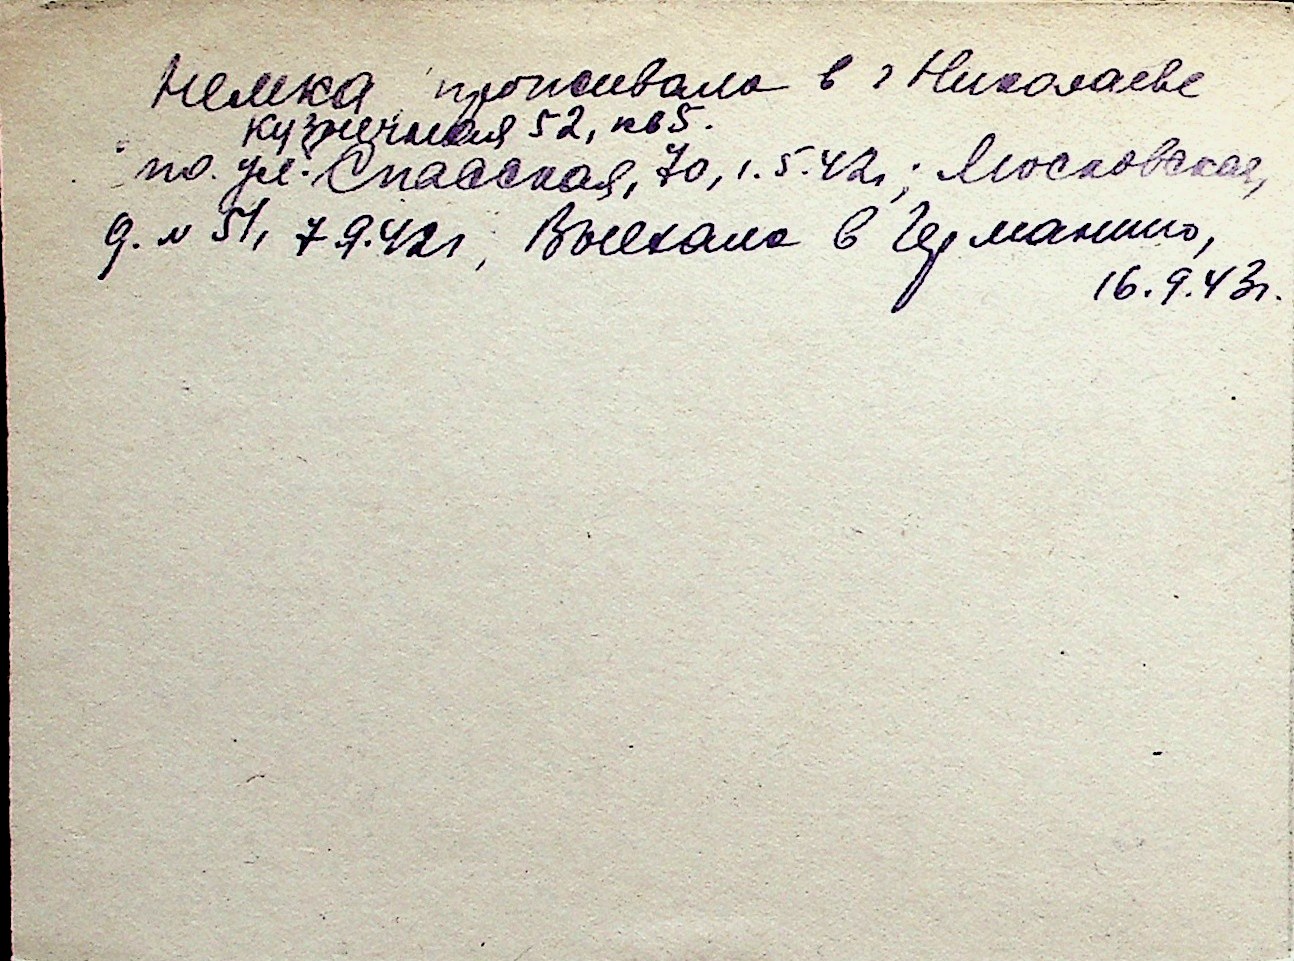 Немка проживала в г Николаеве
Кузнечная 52, кв 5.
по. ул. Спасская, 70, 1.5.42г; Московская,
д. № 51, 7 9.42г, Выехала в Германию,
16.9.43г.